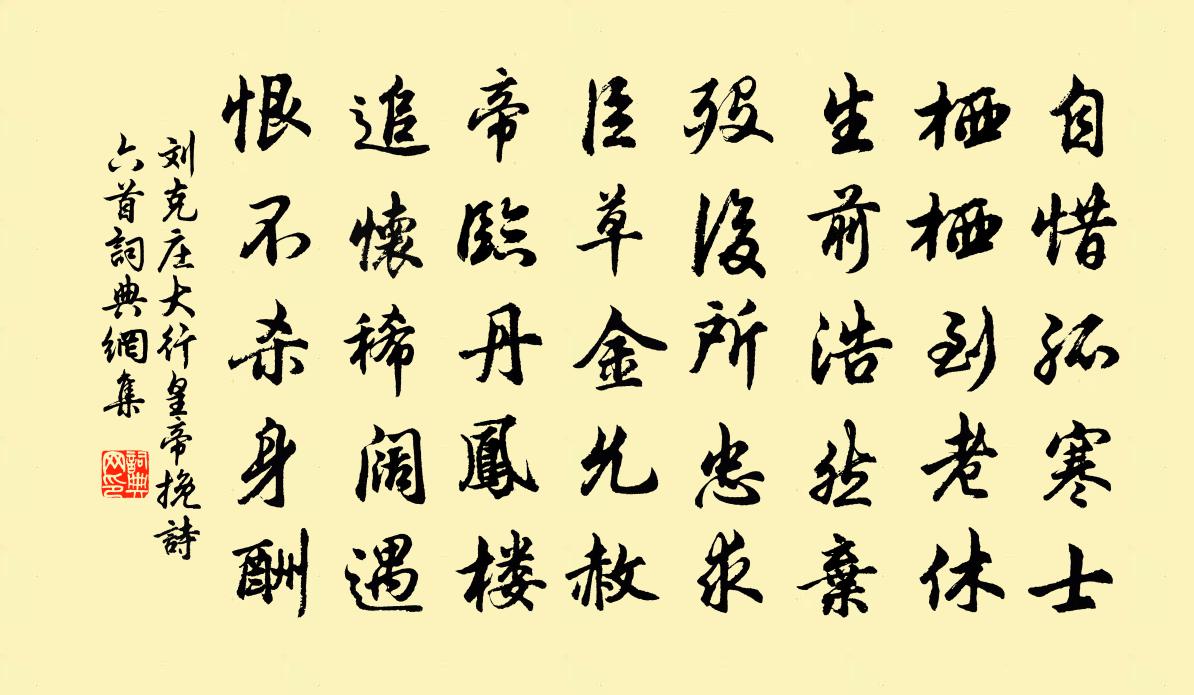 自惜孤寒士
栖栖到老休
生前浩然棄
殁後所忠求
臣草金幺赦
帝臨丹鳳楼
追懷稀阔遇
恨不杀身酬
刘克庄大行皇帝挽詩
六首詞典網集
詞典
网印